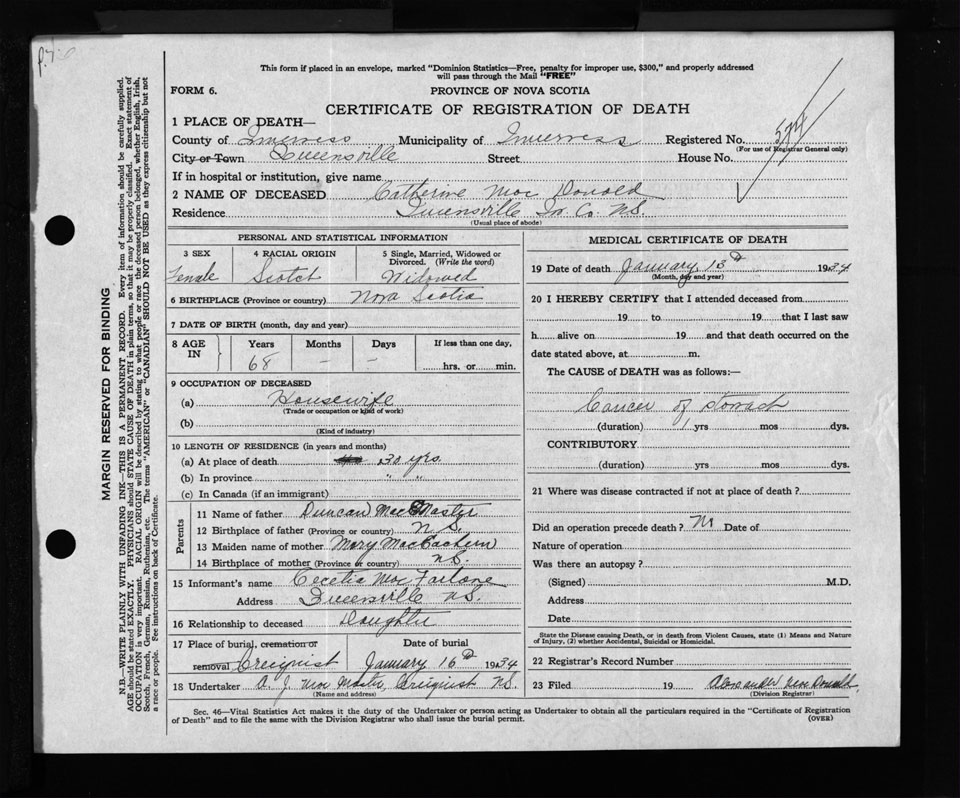 This form if placed in an envelope, marked "Dominion Statistics—Free, penalty for improper use, $300," and properly addressed
will pass through the Mail "FREE"
FORM 6.
PROVINCE OF NOVA SCOTIA
CERTIFICATE OF REGISTRATION OF DEATH
1 PLACE OF DEATH—
County of Inverness Municipality of Inverness Registered No.
(For use of Registrar General only)
City or Town Queensville Street House No.
If in hospital or institution, give name
2 NAME OF DECEASED Catherine Mac Donald
Residence Queensville In Co. N.S.
(Usual place of abode)
PERSONAL AND STATISTICAL INFORMATION
3 SEX 4 RACIAL ORIGIN 5 Single, Married, Widowed or
Divorced. (Write the word)
Female Scotch Widowed
6 BIRTHPLACE (Province or country) Nova Scotia
7 DATE OF BIRTH (month, day and year)
8 AGE IN Years Months Days If less than one day,
68 – – hrs. or min.
9 OCCUPATION OF DECEASED
(a) Housewife
(Trade or occupation or kind of work)
(b)
(Kind of industry)
10 LENGTH OF RESIDENCE (in years and months)
(a) At place of death 30 yrs.
(b) In province " "
(c) In Canada (if an immigrant)
Parents
11 Name of father Duncan MacMaster
12 Birthplace of father (Province or country) N S.
13 Maiden name of mother Mary MacEachern
14 Birthplace of mother (Province or country) N.S.
15 Informant's name Cecelia Mac Farlane
Address Queensville N.S.
16 Relationship to deceased Daughter
17 Place of burial, cremation or Date of burial
removal Creignist January 16th 1934
18 Undertaker A. J. Mac Master, Creignist N.S.
(Name and address)
MEDICAL CERTIFICATE OF DEATH
19 Date of death January 13th 1934
(Month, day and year)
20 I HEREBY CERTIFY that I attended deceased from
19 to 19 that I last saw
h alive on 19 and that death occurred on the
date stated above, at m.
The CAUSE of DEATH was as follows:—
Cancer of Stomach
(duration) 1 yrs mos dys.
CONTRIBUTORY
(duration) yrs mos dys.
21 Where was disease contracted if not at place of death ?
Did an operation precede death ? No Date of
Nature of operation
Was there an autopsy ?
(Signed) M.D.
Address
Date
State the Disease causing Death, or in death from Violent Causes, state (1) Means and Nature
of Injury, (2) whether Accidental, Suicidal or Homicidal.
22 Registrar's Record Number
23 Filed 19 Alexander MacDonald
(Division Registrar)
Sec. 46—Vital Statistics Act makes it the duty of the Undertaker or person acting as Undertaker to obtain all the particulars required in the "Certificate of Registration
of Death" and to file the same with the Division Registrar who shall issue the burial permit.
(OVER)
MARGIN RESERVED FOR BINDING
N.B.—WRITE PLAINLY WITH UNFADING INK—THIS IS A PERMANENT RECORD. Every item of information should be carefully supplied.
AGE should be stated EXACTLY. PHYSICIANS should STATE CAUSE OF DEATH in plain terms, so that it may be properly classified. Exact statement of
OCCUPATION is very important. RACIAL ORIGIN will be described by stating to what people or race the deceased person belonged, whether English, Irish,
Scotch, French, German, Russian, Ruthenian, etc. The terms "AMERICAN" or "CANADIAN" SHOULD NOT BE USED as they express citizenship but not
a race or people. See instructions on back of Certificate.